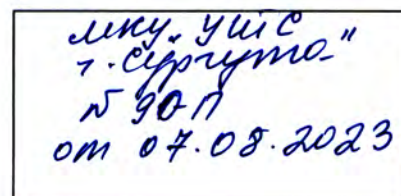 мку „УИТС
г. Сургута"
№ 90-П
от 07.08.2023